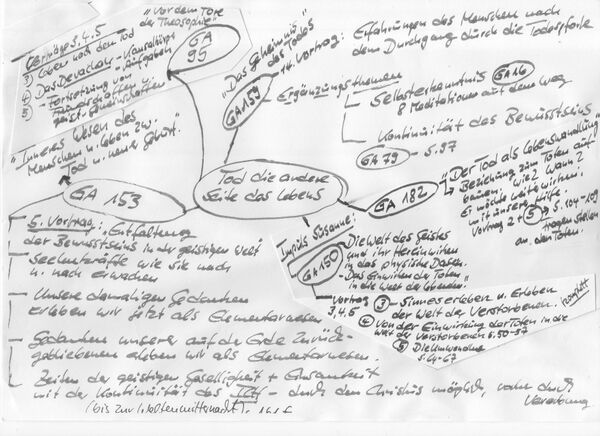 "Vor dem Tore
der Theosophie"
GA
95
Vorträge 3, 4, 5
③ Leben nach dem Tod
④ Das Devachan -
⑤ - Fortsetzung von
Freundschaften u.
geist. Gemeinschaften
"Inneres Wesen des
Menschen u. Leben zw.
Tod u. neuer Geburt."
GA 153
5. Vortrag: "Entfaltung
der Bewusstseins in der geistigen Welt
Seelenkräfte wie sie nach
u. nach erwachen
Unsere damaligen Gedanken
erleben wir jetzt als Elementarwesen
Gedanken unserer auf der Erde Zurück-
gebliebenen erleben wir als Elementarwesen.
Zeiten der geistigen Geselligkeit + Einsamkeit
mit der Kontinuität des ICH - durch den Christus möglich, vorher durch
Vererbung
(bis zur Weltenmitternacht).
Tod die andere
Seite des Lebens
"Das Geheimnis
des Todes"
GA 159
14. Vortrag:
Erfahrungen des Menschen nach
dem Durchgang durch die Todespforte
Ergänzungsthemen
Selbsterkenntnis GA 16
8 Meditationen auf dem Weg
Kontinuität des Bewusstseins
GA 79 - S. 97
GA 182
"Der Tod als Lebenswandlung"
Beziehung zum Toten auf-
bauen: wie? Wann?
Er möchte weiterwirken
mit unserer Hilfe.
Vortrag 2 + ⑤ S. 104-109
Fragen stellen
an den Toten.
Impuls Susanne:
GA 150
- Die Welt des Geistes
und ihr Hereinwirken
in das physische Dasein.
- Das Einwirken der Toten
in die Welt der Lebenden."
Vortrag
3, 4, 5
③ - Sinneserleben u. Erleben
der Welt der Verstorbenen.
komplett
④ - Von der Einwirkung der Toten in die
Welt der Verstorbenen S. 50-57
⑤
S. 64-67